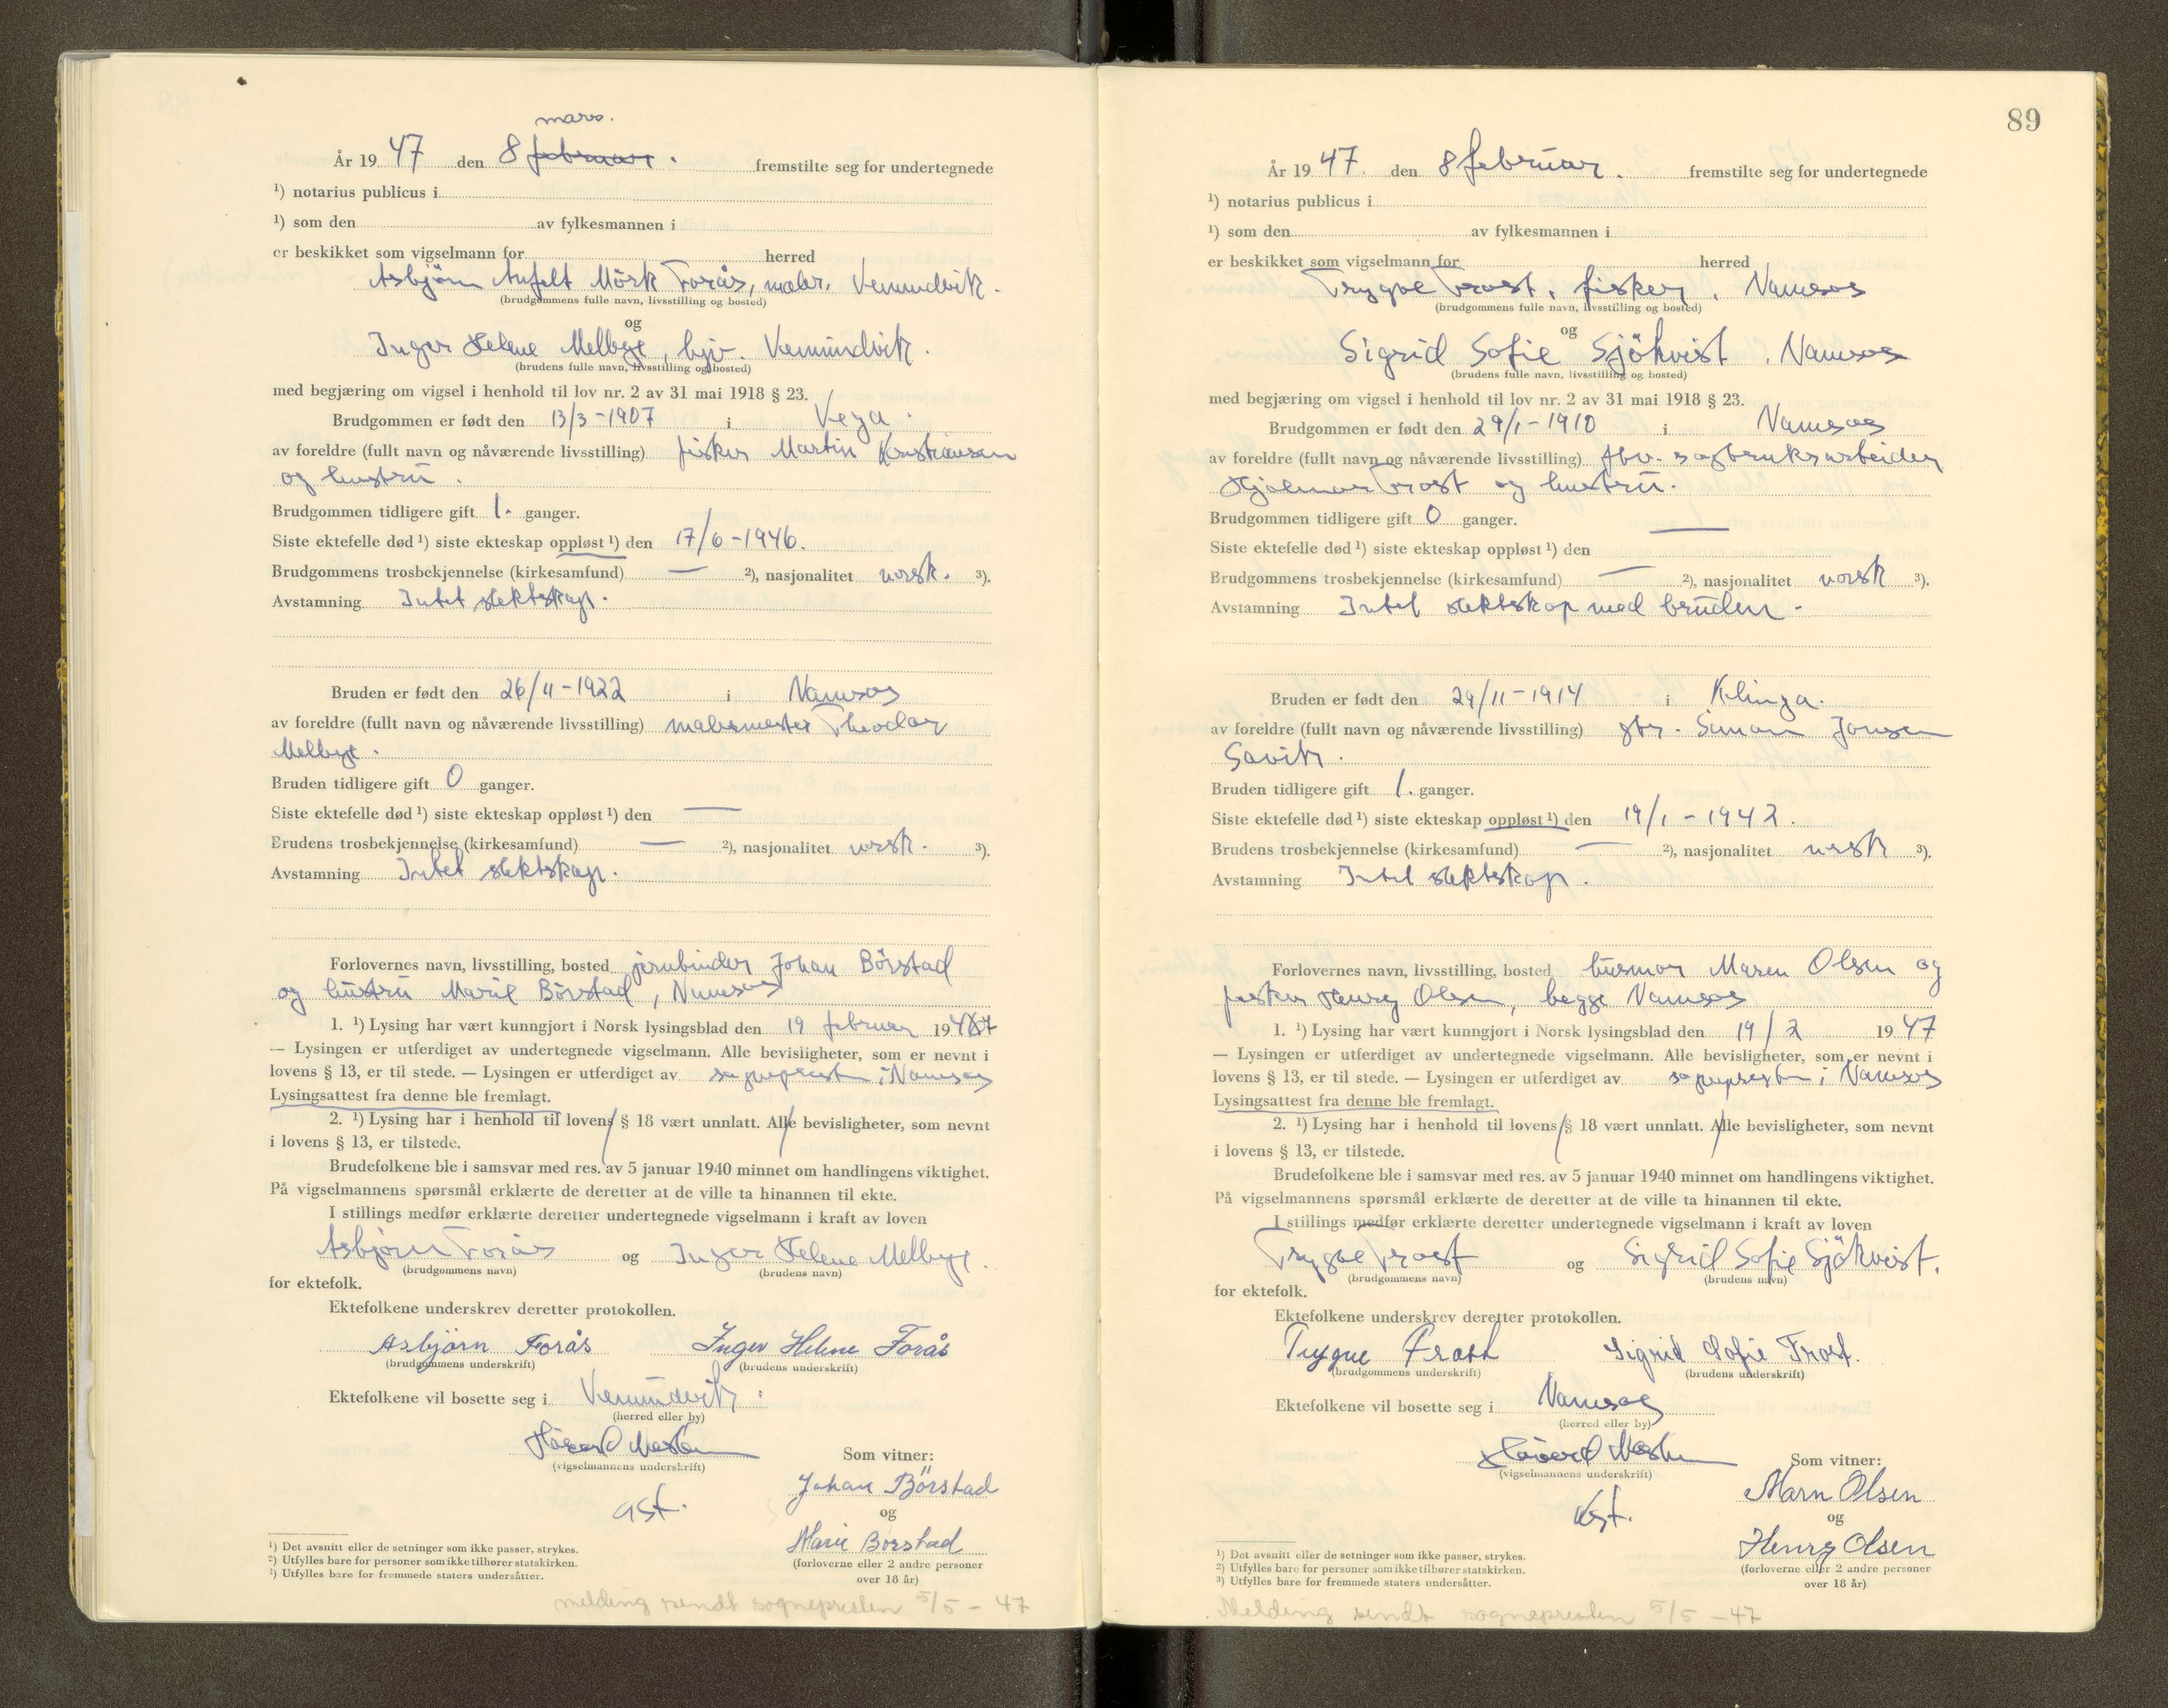 mars.
År 19 47 den 8 februar. fremstilte seg for undertegnede
¹) notarius publicus i
¹) som den av fylkesmannen i
er beskikket som vigselmann for herred
Asbjörn Mörk Forås, maler, Vemundvik.
(brudgommens fulle navn, livsstilling og bosted)
og
Inger Helene Melbye, hjv. Vemundvik.
(brudens fulle navn, livsstilling og bosted)
med begjæring om vigsel i henhold til lov nr. 2 av 31 mai 1918 § 23.
Brudgommen er født den 13/3-1907 i Vega.
av foreldre (fullt navn og nåværende livsstilling) fisker Martin Kristiansen
og hustru.
Brudgommen tidligere gift 1. ganger.
Siste ektefelle død ¹) siste ekteskap oppløst ¹) den 17/6-1946.
Brudgommens trosbekjennelse (kirkesamfund) — ²), nasjonalitet norsk. ³).
Avstamning Intet slektskap.
Bruden er født den 26/11-1922 i Namsos
av foreldre (fullt navn og nåværende livsstilling) malermester Theodor
Melbye.
Bruden tidligere gift 0 ganger.
Siste ektefelle død ¹) siste ekteskap oppløst ¹) den —
Brudens trosbekjennelse (kirkesamfund) — ²), nasjonalitet norsk. ³).
Avstamning Intet slektskap.
Forlovernes navn, livsstilling, bosted jernbinder Johan Börstad
og hustru Marie Börstad, Namsos
1. ¹) Lysing har vært kunngjort i Norsk lysingsblad den 19 februar 1947
— Lysingen er utferdiget av undertegnede vigselmann. Alle bevisligheter, som er nevnt i
lovens § 13, er til stede. — Lysingen er utferdiget av sogneprest i Namsos
Lysingsattest fra denne ble fremlagt.
2. ¹) Lysing har i henhold til lovens § 18 vært unnlatt. Alle bevisligheter, som nevnt
i lovens § 13, er tilstede.
Brudefolkene ble i samsvar med res. av 5 januar 1940 minnet om handlingens viktighet.
På vigselmannens spørsmål erklærte de deretter at de ville ta hinannen til ekte.
I stillings medfør erklærte deretter undertegnede vigselmann i kraft av loven
Asbjörn Forås og Inger Helene Melbye.
(brudgommens navn) (brudens navn)
for ektefolk.
Ektefolkene underskrev deretter protokollen.
Asbjörn Forås Inger Helene Forås
(brudgommens underskrift) (brudens underskrift)
Ektefolkene vil bosette seg i Vemundvik.
(herred eller by)
(vigselmannens underskrift)
Som vitner:
Johan Börstad
og
Marie Borstad
(forloverne eller 2 andre personer
over 18 år)
¹) Det avsnitt eller de setninger som ikke passer, strykes.
²) Utfylles bare for personer som ikke tilhører statskirken.
³) Utfylles bare for fremmede staters undersåtter.
melding sendt sognepresten 5/5 - 47
89
År 19 47. den 8 februar. fremstilte seg for undertegnede
¹) notarius publicus i
¹) som den av fylkesmannen i
er beskikket som vigselmann for herred
Trygve Frost, fisker, Namsos
(brudgommens fulle navn, livsstilling og bosted)
og
Sigrid Sofie Sjökvist, Namsos
(brudens fulle navn, livsstilling og bosted)
med begjæring om vigsel i henhold til lov nr. 2 av 31 mai 1918 § 23.
Brudgommen er født den 29/1-1910 i Namsos
av foreldre (fullt navn og nåværende livsstilling) fhv. sagbruksarbeider
Hjalmar Frost og hustru.
Brudgommen tidligere gift 0 ganger.
Siste ektefelle død ¹) siste ekteskap oppløst ¹) den —
Brudgommens trosbekjennelse (kirkesamfund) — ²), nasjonalitet norsk ³).
Avstamning Intet slektskap med bruden.
Bruden er født den 29/11-1914 i Klinga.
av foreldre (fullt navn og nåværende livsstilling) gbr. Simon Jonsen
Savik.
Bruden tidligere gift 1. ganger.
Siste ektefelle død ¹) siste ekteskap oppløst ¹) den 19/1-1942.
Brudens trosbekjennelse (kirkesamfund) — ²), nasjonalitet norsk ³).
Avstamning Intet slektskap.
Forlovernes navn, livsstilling, bosted husmor Maren Olsen og
fisker Henry Olsen, begge Namsos
1. ¹) Lysing har vært kunngjort i Norsk lysingsblad den 19/2 1947
— Lysingen er utferdiget av undertegnede vigselmann. Alle bevisligheter, som er nevnt i
lovens § 13, er til stede. — Lysingen er utferdiget av sognepresten i Namsos
Lysingsattest fra denne ble fremlagt.
2. ¹) Lysing har i henhold til lovens § 18 vært unnlatt. Alle bevisligheter, som nevnt
i lovens § 13, er tilstede.
Brudefolkene ble i samsvar med res. av 5 januar 1940 minnet om handlingens viktighet.
På vigselmannens spørsmål erklærte de deretter at de ville ta hinannen til ekte.
I stillings medfør erklærte deretter undertegnede vigselmann i kraft av loven
Trygve Frost og Sigrid Sofie Sjökvist.
(brudgommens navn) (brudens navn)
for ektefolk.
Ektefolkene underskrev deretter protokollen.
Trygve Frost Sigrid Sofie Frost.
(brudgommens underskrift) (brudens underskrift)
Ektefolkene vil bosette seg i Namsos
(herred eller by)
(vigselmannens underskrift)
Som vitner:
Marn Olsen
og
Henry Olsen
(forloverne eller 2 andre personer
over 18 år)
¹) Det avsnitt eller de setninger som ikke passer, strykes.
²) Utfylles bare for personer som ikke tilhører statskirken.
³) Utfylles bare for fremmede staters undersåtter.
Melding sendt sognepresten 5/5 - 47